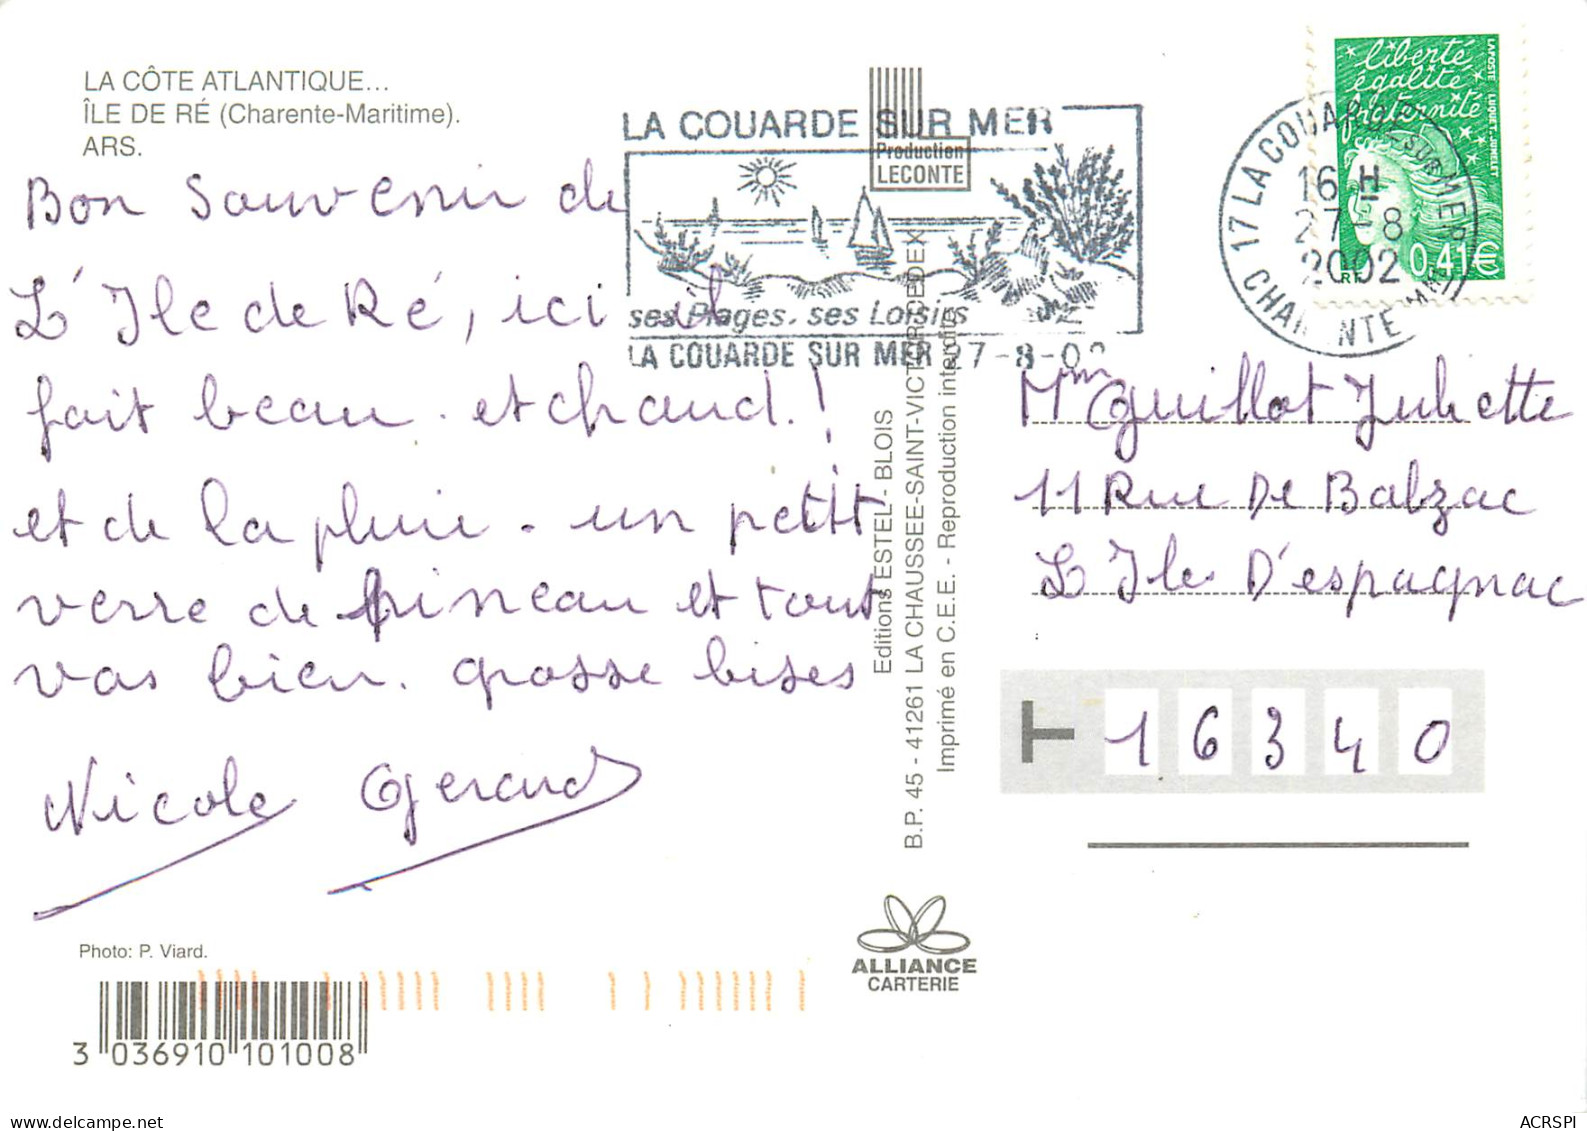 LA CÔTE ATLANTIQUE...
ÎLE DE RÉ (Charente-Maritime).
ARS.
Bon Souvenir de
L'Ile de Ré, ici il
fait beau. et chaud.!
et de la pluie. un petit
verre de pineau et tout
vas bien. grosse bises
Nicole Gerard
Photo: P. Viard.
3 036910 101008
Production
LECONTE
LA COUARDE SUR MER
ses Plages. ses Loisirs
LA COUARDE SUR MER 27-8-02
Editions ESTEL - BLOIS
B.P. 45 - 41261 LA CHAUSSEE-SAINT-VICTOR CEDEX
Imprimé en C.E.E. - Reproduction interdite
ALLIANCE
CARTERIE
liberté
égalité
fraternité
LA POSTE LUQUET-JUMELET
RF 0,41€
17 LA COUARDE-SUR-MER
16 H
27-8
2002
CHARENTE MARIT
Mm Guillot Juliette
11 Rue De Balzac
L'Ile D'espagnac
T 16340
ACRSPI